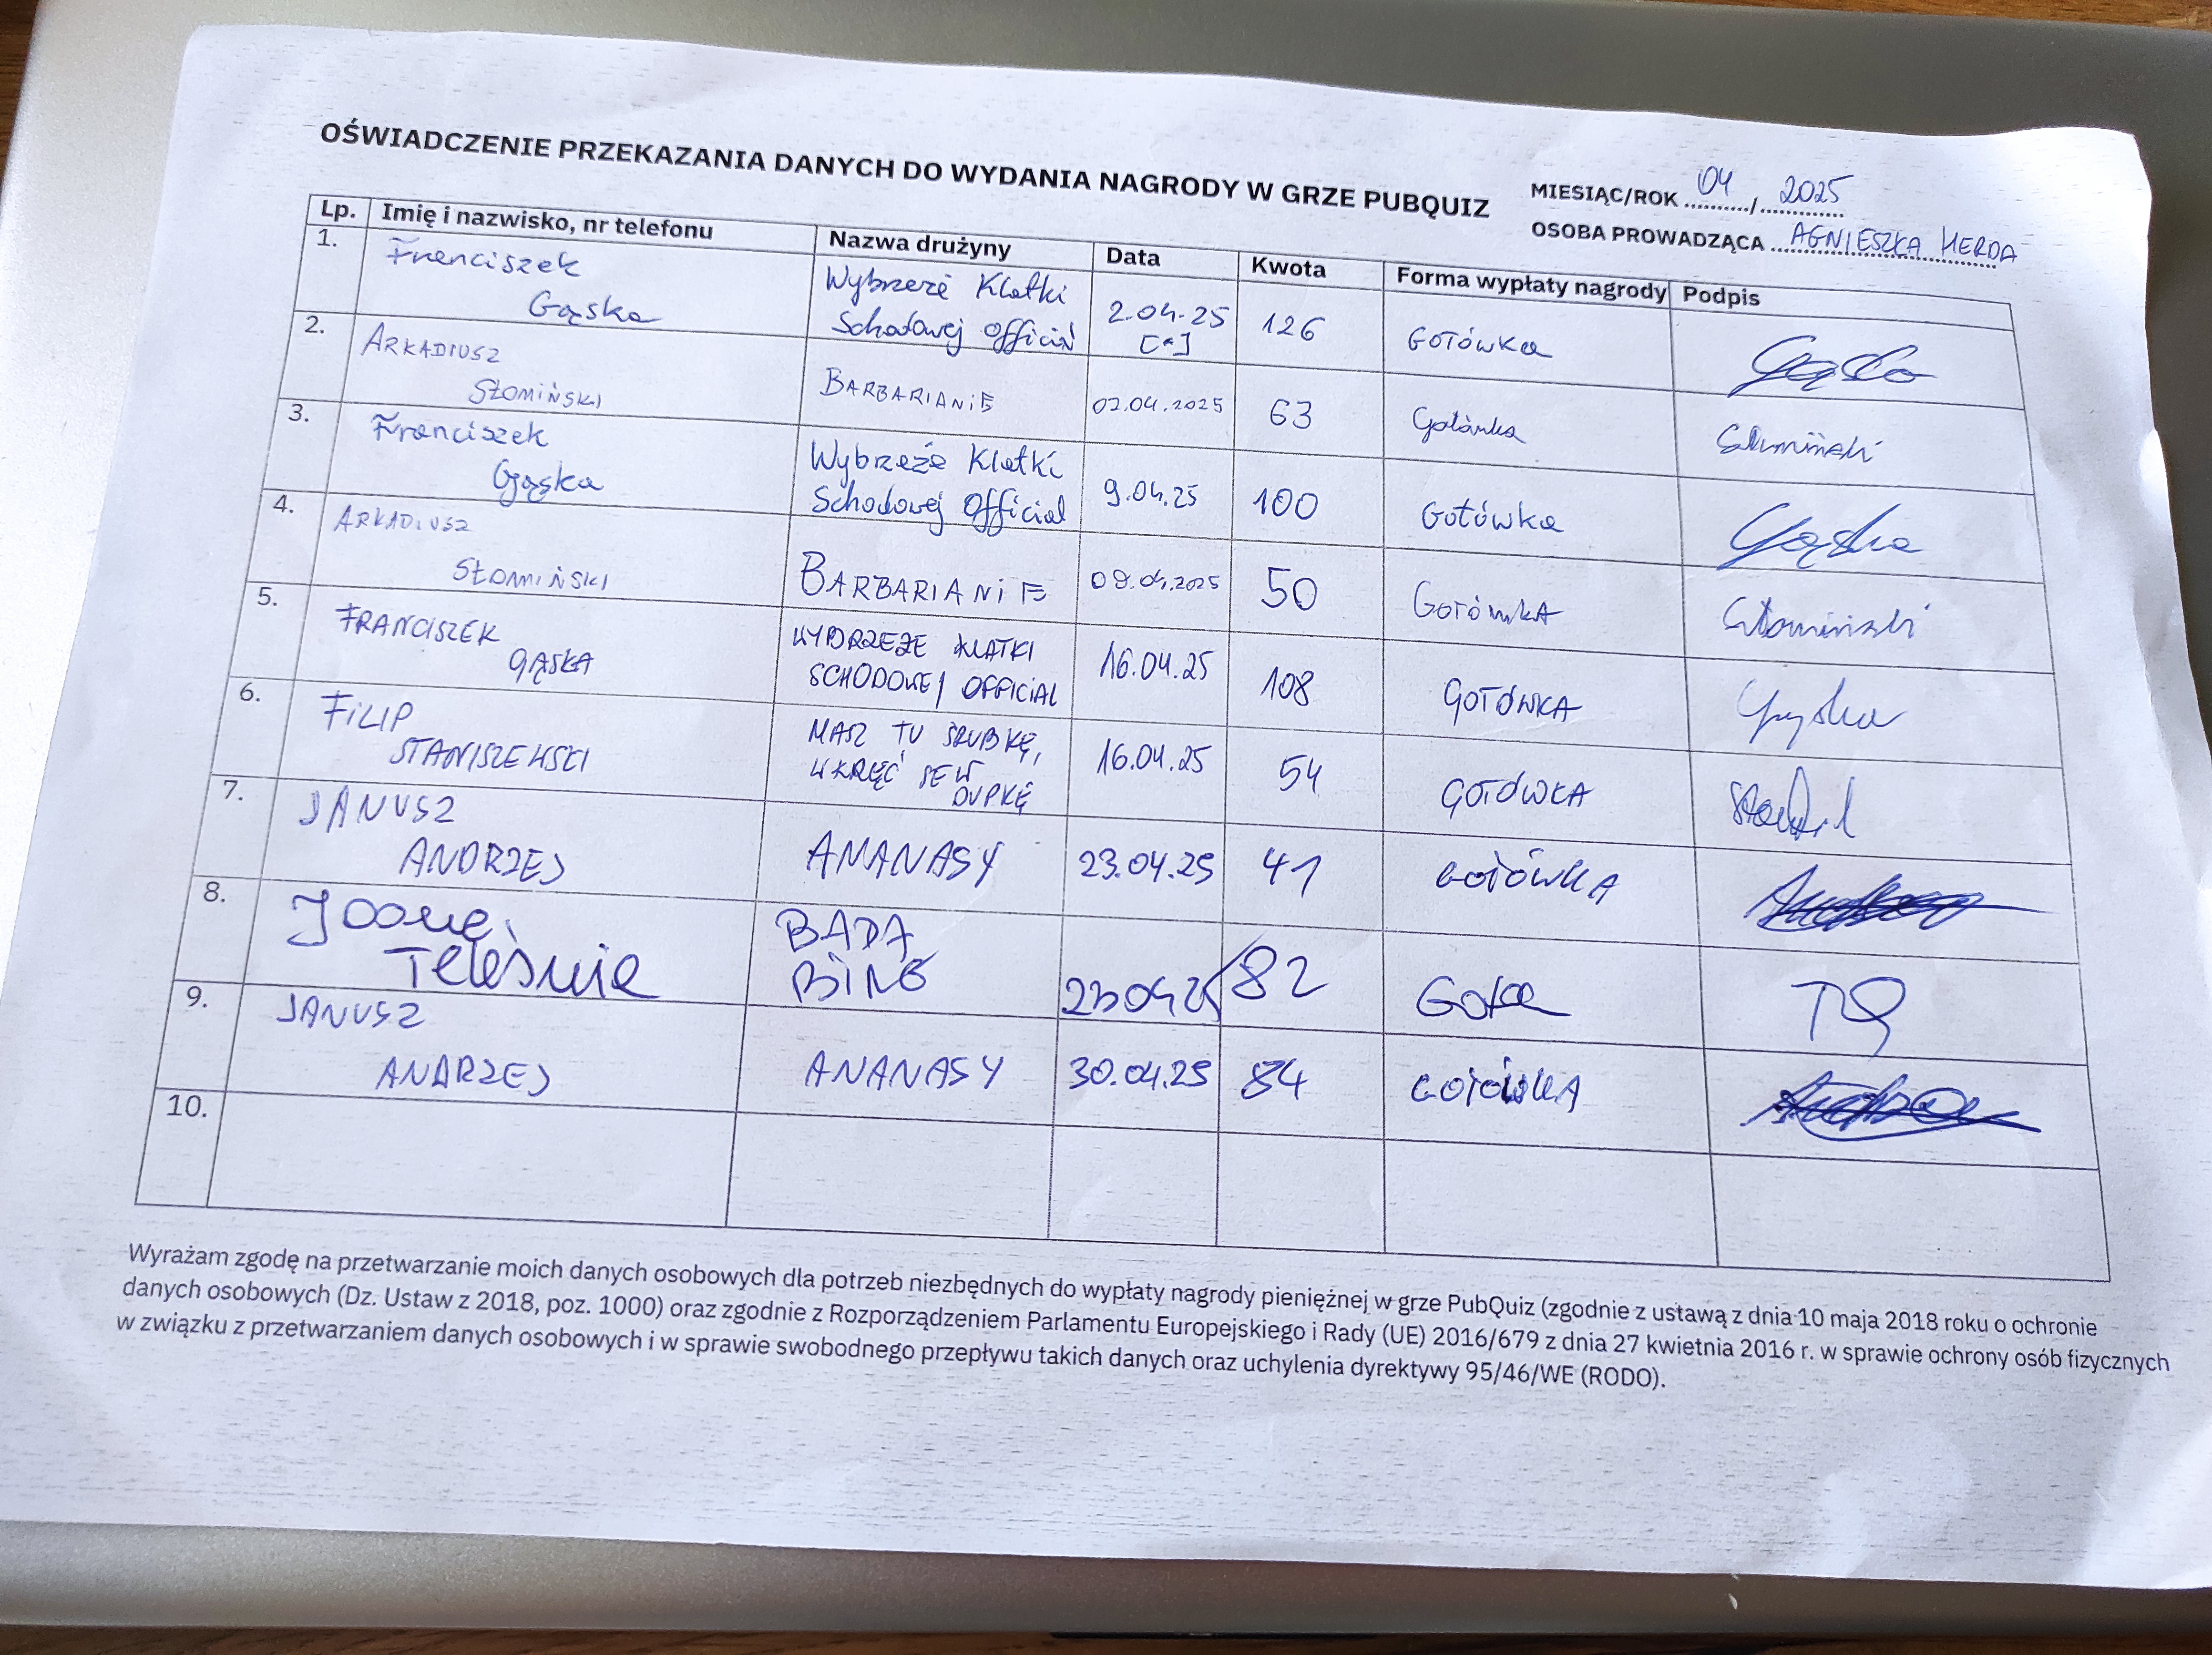 OŚWIADCZENIE PRZEKAZANIA DANYCH DO WYDANIA NAGRODY W GRZE PUBQUIZ
MIESIĄC/ROK 04 / 2025
OSOBA PROWADZĄCA AGNIESZKA HERDA
Lp. Imię i nazwisko, nr telefonu Nazwa drużyny Data Kwota Forma wypłaty nagrody Podpis
1. Franciszek Gąska Wybrzeże Klatki Schodowej 2.04.25 126 GOTÓWKA Gąska
2. ARKADIUSZ SŁOMIŃSKI BARBARIANIE 02.04.2025 63 Gotówka Słomiński
3. Franciszek Gąska Wybrzeże Klatki Schodowej Official 9.04.25 100 Gotówka Gąska
4. ARKADIUSZ SŁOMIŃSKI BARBARIANIE 09.04.2025 50 GOTÓWKA Słomiński
5. FRANCISZEK GĄSKA WYBRZEŻE KLATKI SCHODOWEJ OFFICIAL 16.04.25 108 GOTÓWKA Gąska
6. FILIP STANISZEWSKI MASZ TU ŚRUBKĘ, WKRĘĆ SE W DUPKĘ 16.04.25 54 GOTÓWKA
7. JANUSZ ANDRZEJ ANANASY 23.04.25 41 GOTÓWKA
8. BADA BING 23.04.25 82 TG
9. JANUSZ ANDRZEJ ANANASY 30.04.25 84 GOTÓWKA
10.
Wyrażam zgodę na przetwarzanie moich danych osobowych dla potrzeb niezbędnych do wypłaty nagrody pieniężnej w grze PubQuiz (zgodnie z ustawą z dnia 10 maja 2018 roku o ochronie
danych osobowych (Dz. Ustaw z 2018, poz. 1000) oraz zgodnie z Rozporządzeniem Parlamentu Europejskiego i Rady (UE) 2016/679 z dnia 27 kwietnia 2016 r. w sprawie ochrony osób fizycznych
w związku z przetwarzaniem danych osobowych i w sprawie swobodnego przepływu takich danych oraz uchylenia dyrektywy 95/46/WE (RODO).